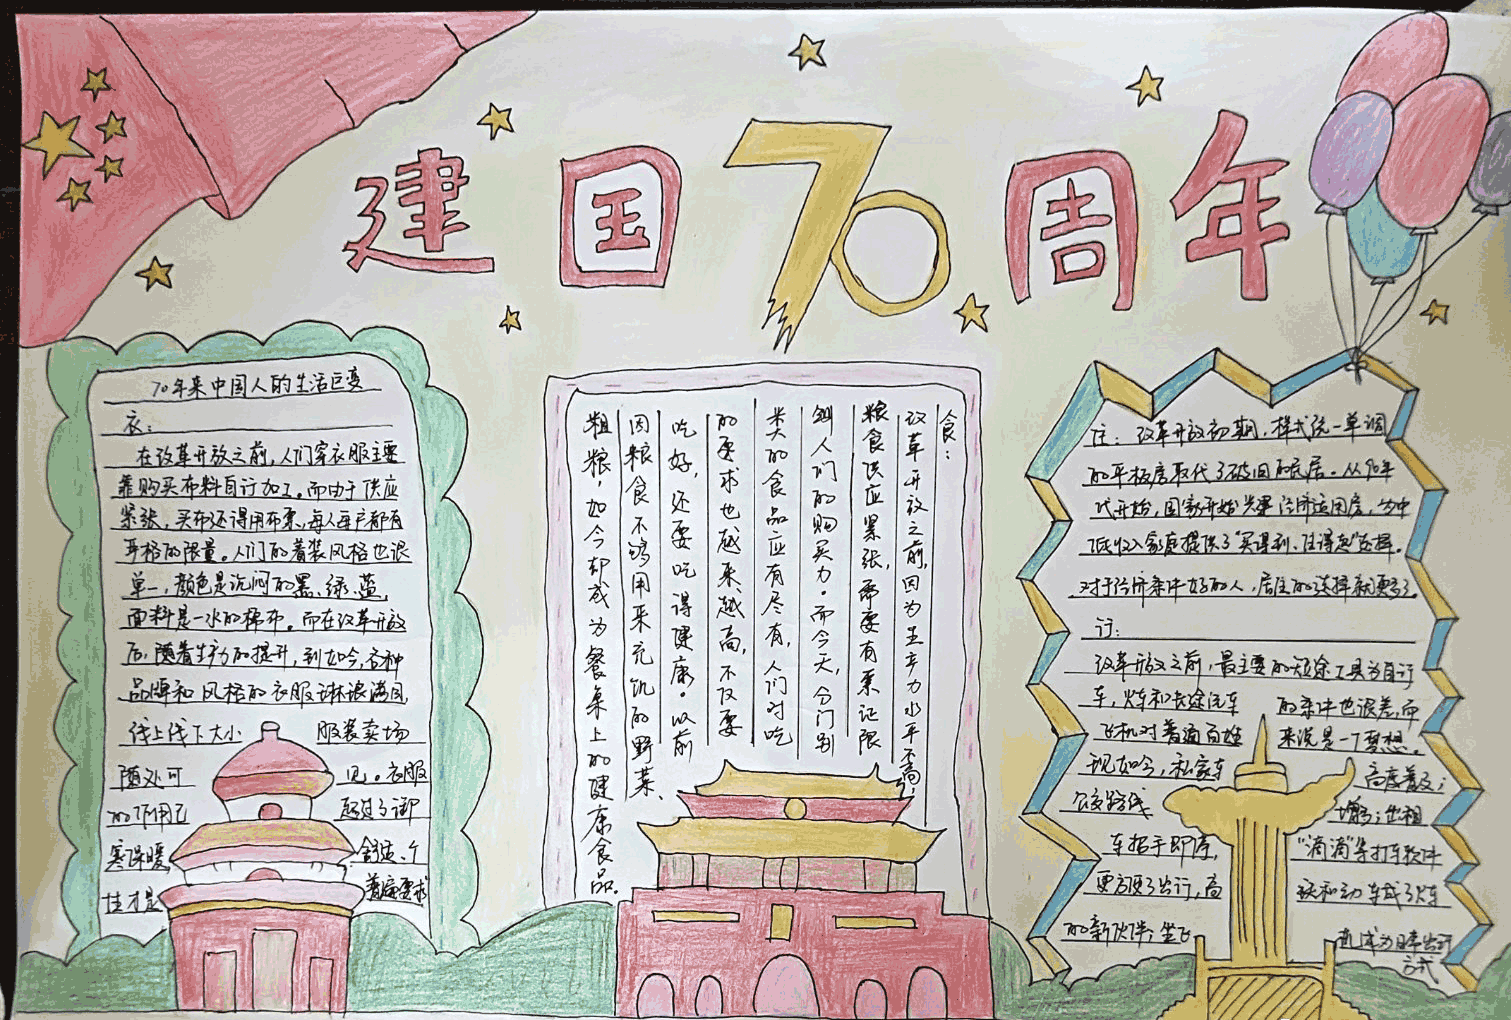 建国70周年
70年来中国人的生活巨变
衣:
在改革开放之前,人们穿衣服主要
靠购买布料自订加工。而由于供应
紧张,买布还得用布票,每人每户都有
严格的限量。人们的着装风格也很
单一,颜色是沉闷的黑、绿、蓝,
面料是一水的棉布。而在改革开放
后,随着生产力的提升,到如今,各种
品牌和风格的衣服琳琅满目,
线上线下大小 服装卖场
随处可 见。衣服
的作用已 超过了御
寒保暖, 舒适、个
性才是 普遍要求
食:
改革开放之前,因为生产力水平不高,
粮食供应紧张,需要有票证限
制人们的购买力。而今天,分门别
类的食品应有尽有,人们对吃
的要求也越来越高,不仅要
吃好,还要吃得健康。以前
因粮食不够用来充饥的野菜、
粗粮,如今却成为餐桌上的健康食品。
住:改革开放初期,样式统一单调
的平板房取代了破旧的民居。从90年
代开始,国家开始兴建经济适用房,为中
低收入家庭提供了"买得到、住得起"选择。
对于经济条件好的人,居住的选择就更多了。
行:
改革开放之前,最主要的短途工具为自行
车,火车和长途汽车 的条件也很差,而
飞机对普通百姓 来说是一个梦想。
现如今,私家车 高度普及;
公交路线 增多;出租
车招手即停, "滴滴"等打车软件
更方便了出行,高 铁和动车成了火车
的新伙伴;坐飞 机成为日常出行
方式